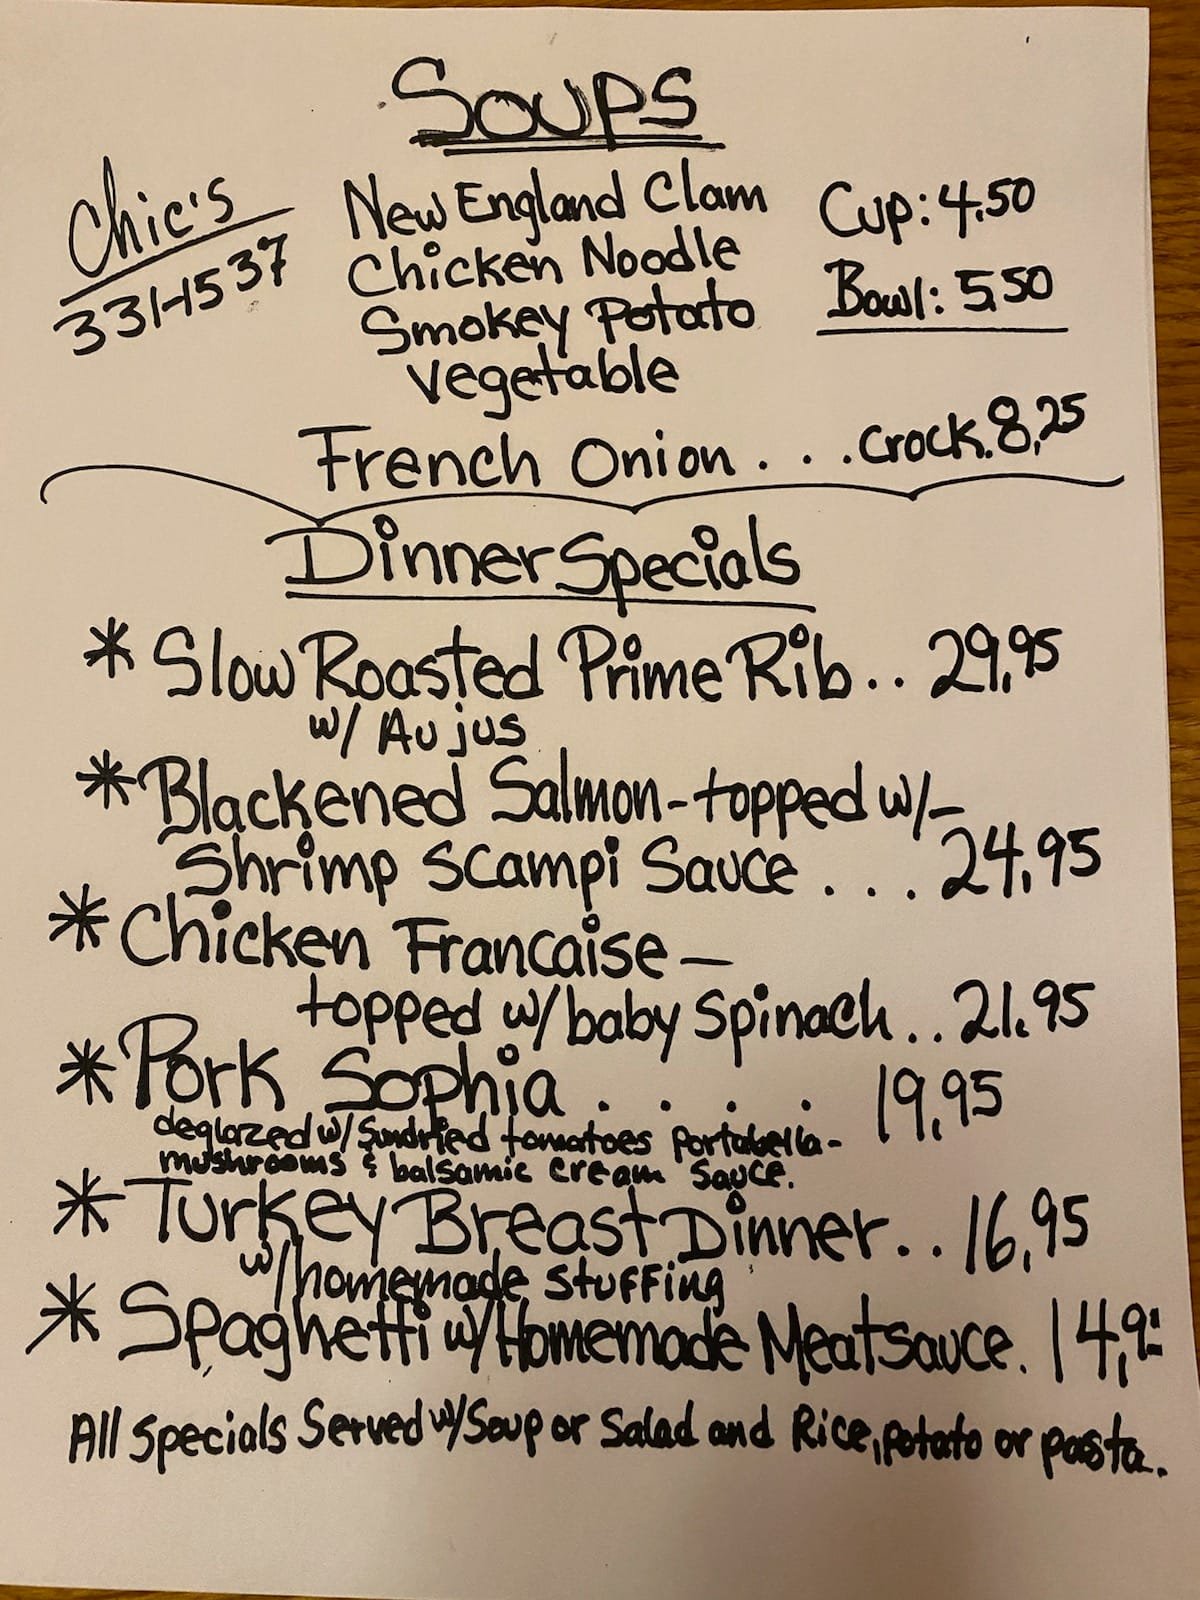 Soups
Chic's
331-1537
New England Clam
Chicken Noodle
Smokey Potato
Vegetable
Cup: 4.50
Bowl: 5.50
French Onion . . . Crock. 8.25
Dinner Specials
* Slow Roasted Prime Rib . . 29.95
w/ Au jus
* Blackened Salmon - topped w/-
Shrimp Scampi Sauce . . . 24.95
* Chicken Francaise —
topped w/ baby Spinach . . 21.95
* Pork Sophia . . . . 19.95
deglazed w/ Sundried tomatoes Portabella-
mushrooms & balsamic cream Sauce.
* Turkey Breast Dinner . . 16.95
w/ homemade Stuffing
* Spaghetti w/ Homemade Meatsauce. 14.9
All Specials Served w/ Soup or Salad and Rice, potato or pasta.